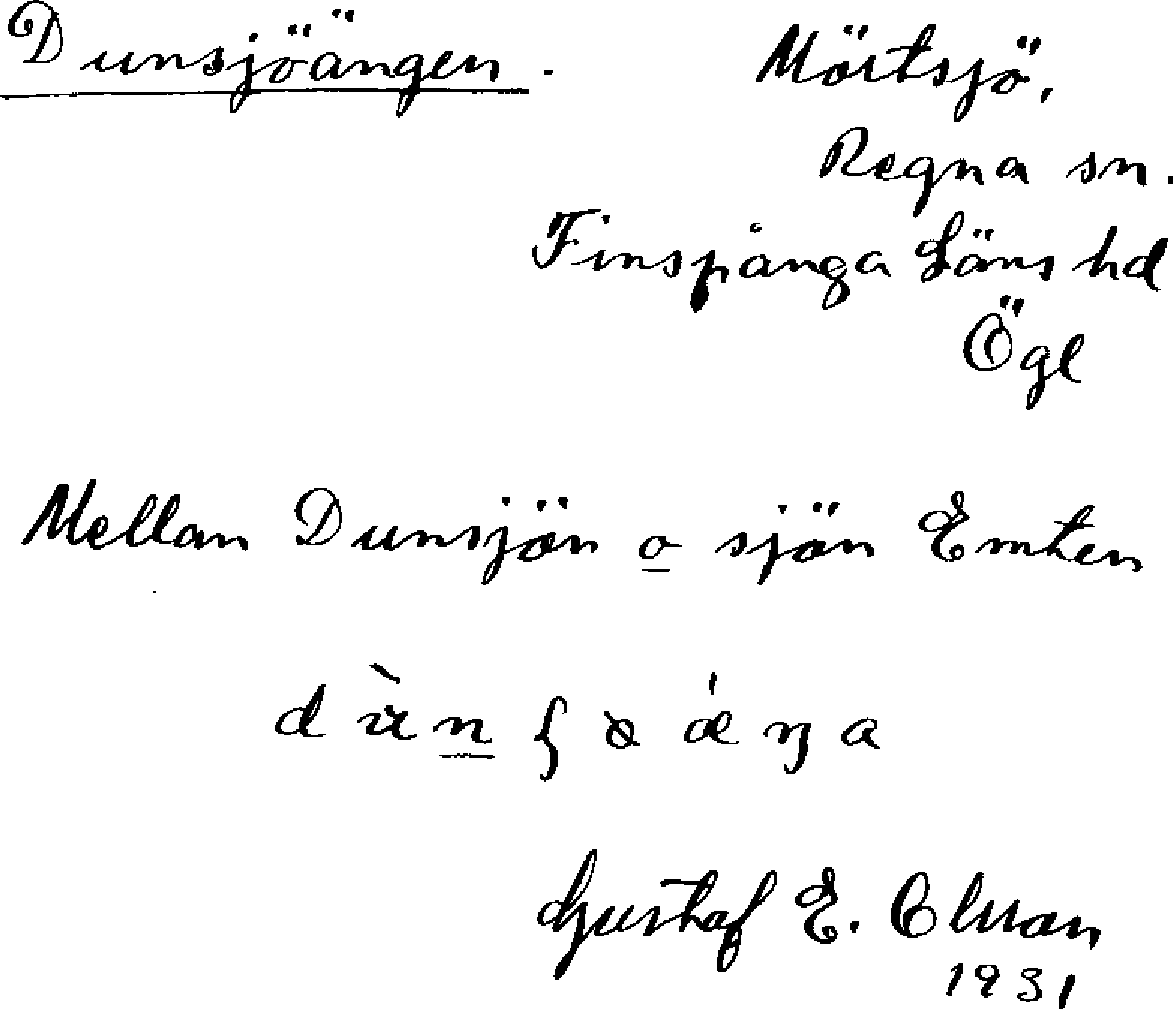 Dunsjöängen.
Mörtsjö,
Regna sn.
Finspånga Läns hd
Ögl
Mellan Dunsjön o sjön Emten
Gustaf E. Olsson
1931